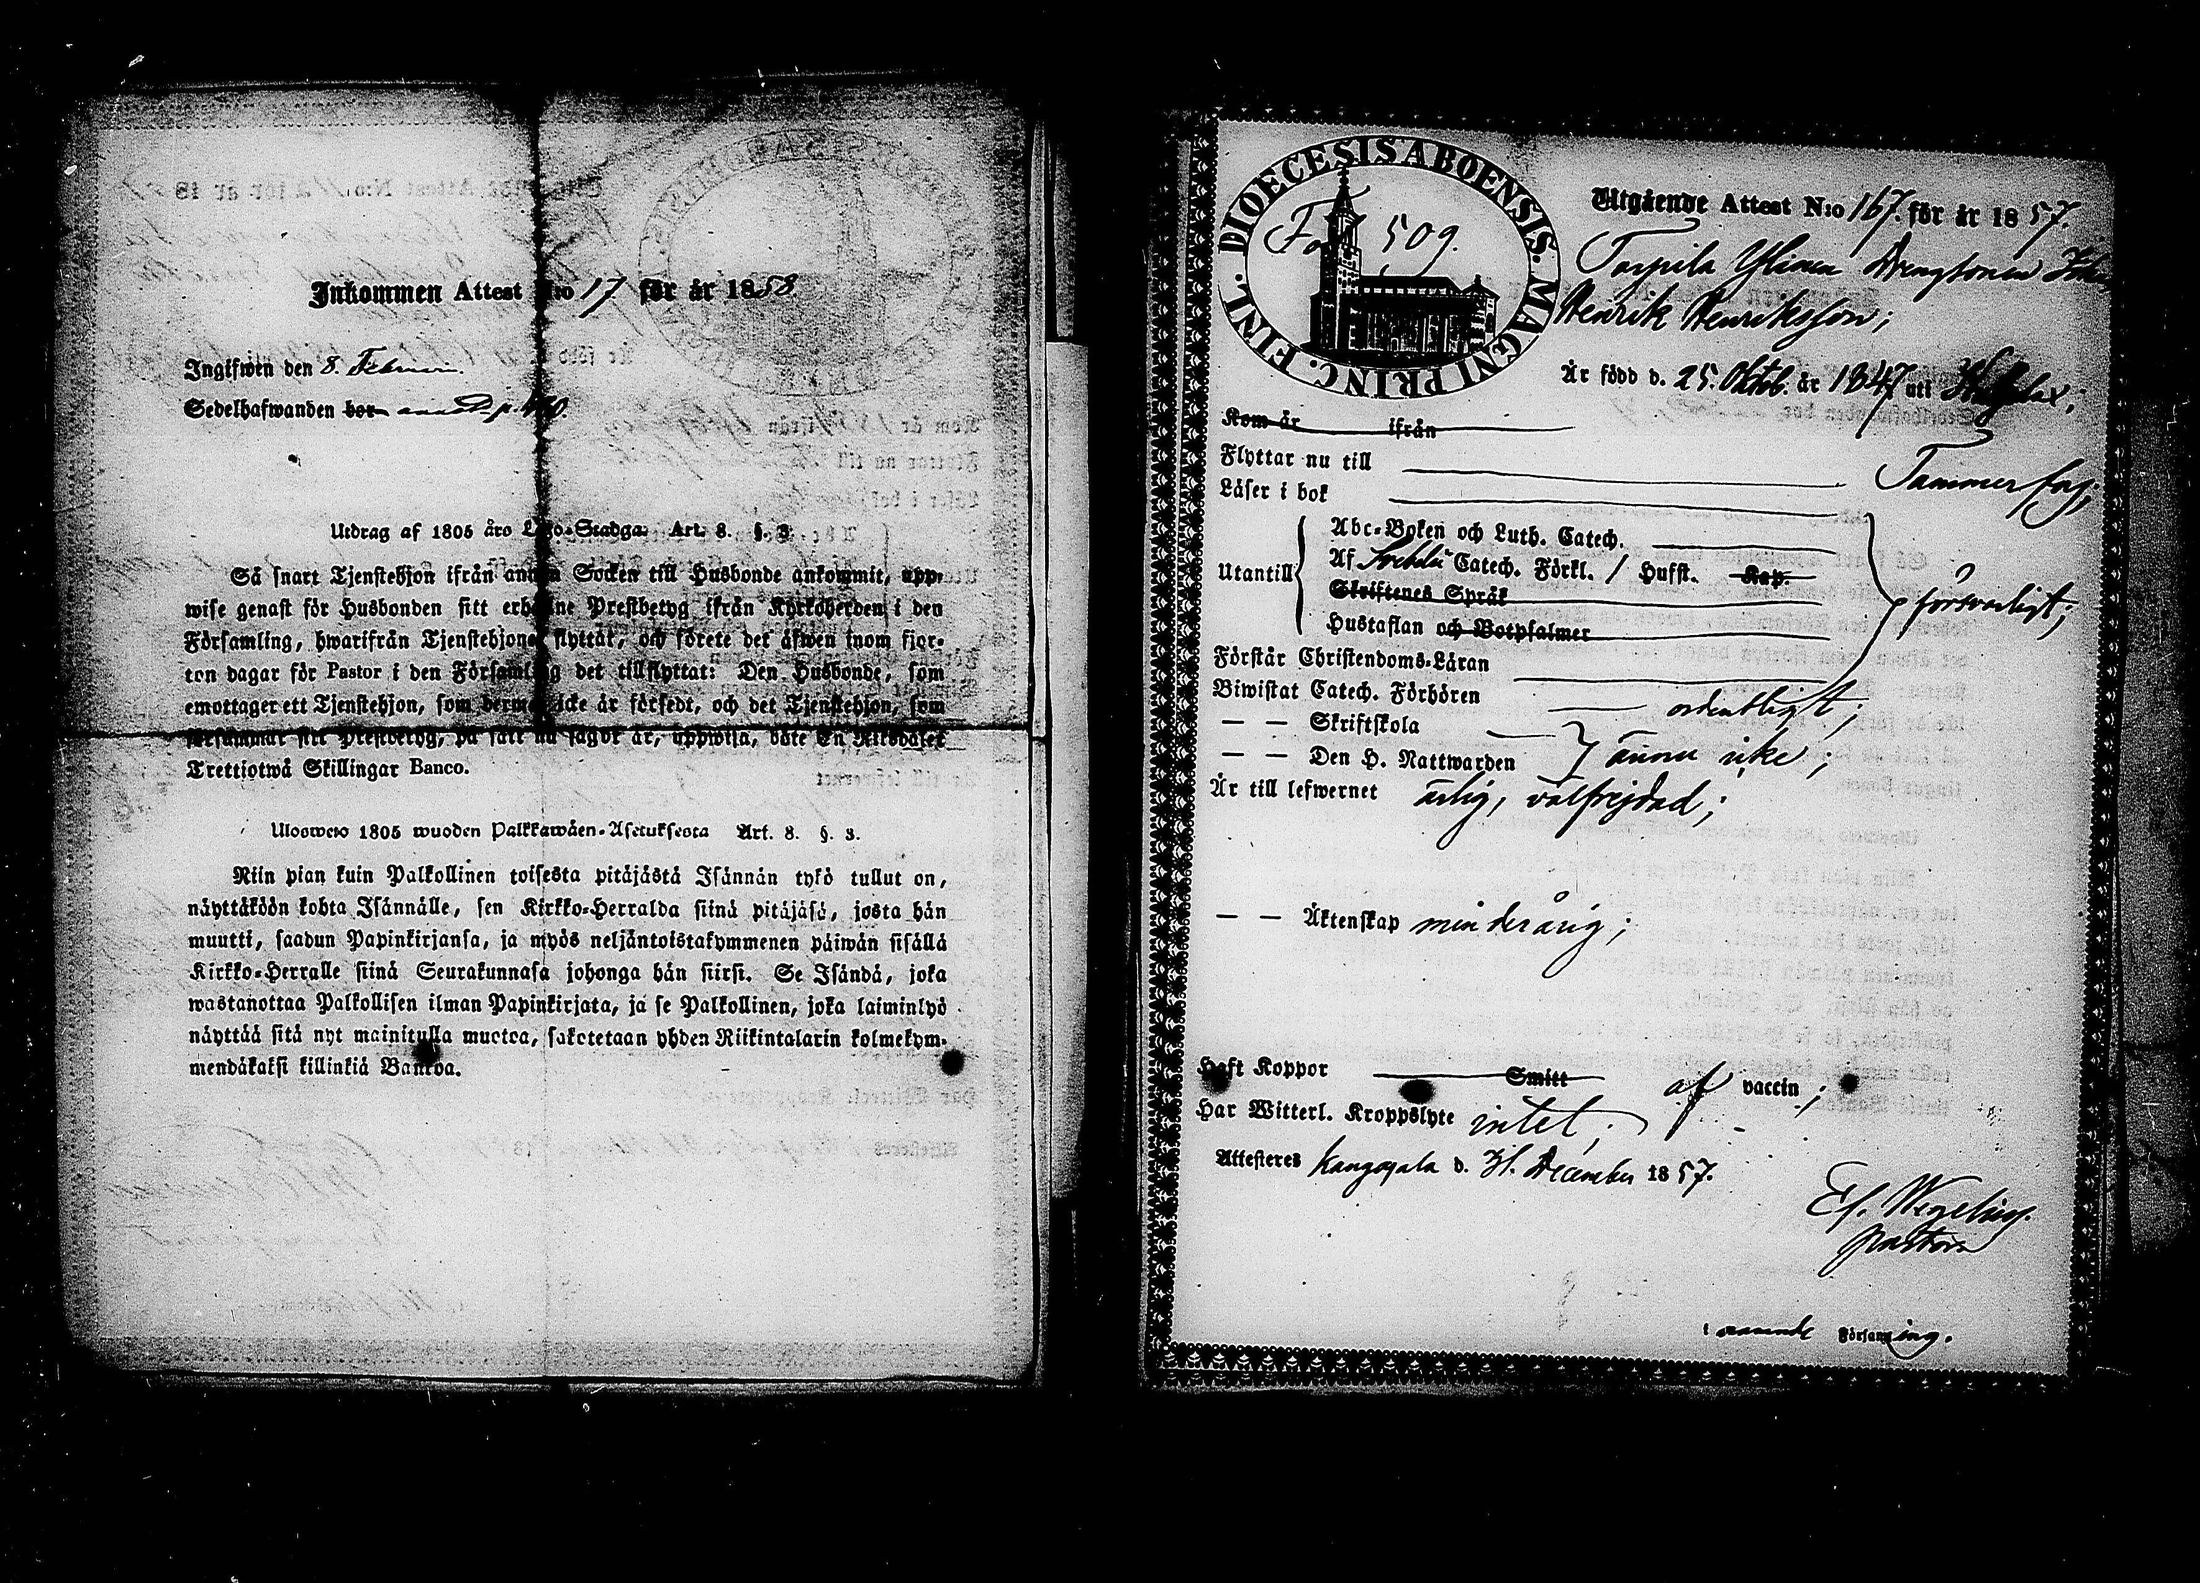 Inkommen Attest N:o 17 för år 1858.
Ingifwen den 8. Februari
Sedelhafwanden bor p. 460.
Utdrag af 1805 års Lego-Stadga. Art. 8. §. 3.
Så snart Tjenstehjon ifrån annan Socken till Husbonde ankommit, upp-
wise genast för Husbonden sitt erhållne Prestbetyg ifrån Kyrkoherden i den
Församling, hwarifrån Tjenstehjonet flyttat, och förete det äfwen inom fjor-
ton dagar för Pastor i den Församling det tillflyttat: Den Husbonde, som
emottager ett Tjenstehjon, som dermed icke är försedt, och det Tjenstehjon, som
försummar sitt Prestbetyg, på sätt nu sagdt är, uppwisa, böte En Riksdaler
Trettiotwå Skillingar Banco.
Ulosweto 1805 wuoden Palkkawäen-Asetuksesta Art. 8. §. 3.
Niin pian kuin Palkollinen toisesta pitäjästä Isännän tykö tullut on,
näyttäköön kohta Isännälle, sen Kirkko-Herralda siinä pitäjäsä, josta hän
muutti, saadun Papinkirjansa, ja myös neljäntoistakymmenen päiwän sisällä
Kirkko-Herralle siinä Seurakunnasa johonga hän siirsi. Se Isändä, joka
wastanottaa Palkollisen ilman Papinkirjata, ja se Palkollinen, joka laiminlyö
näyttää sitä nyt mainitulla muotoa, sakotetaan yhden Riikintalarin kolmekym-
mendäkaksi killinkiä Bankoa.
FINL. DIOECESIS ABOENSIS. MAGNI PRINC.
509.
Utgående Attest N:o 167. för år 1857.
Tarpila Ylinen Drengsonen Johan
Henrik Henriksson;
Är född d. 25. Oktob. år 1847 uti
Kom år ifrån
Flyttar nu till Tammerfors;
Läser i bok
Utantill
Abc-Boken och Luth. Catech.
Af Svebilii Catech. Förkl. / Hufst. Kap.
Skriftenes Språk
Hustaflan och Botpsalmer
försvarligt;
Förstår Christendoms-Läran
Biwistat Catech. Förhören ordentligt;
— — Skriftskola
— — Den H. Nattwarden ännu icke;
Är till lefwernet ärlig, välfrejdad;
— — Äktenskap minderårig;
Haft Koppor Smitt af vaccin;
Har Witterl. Kroppslyte intet;
Attesteres Kangasala d. 31. December 1857.
Ef. Wegelius.
pastor
i Församling.